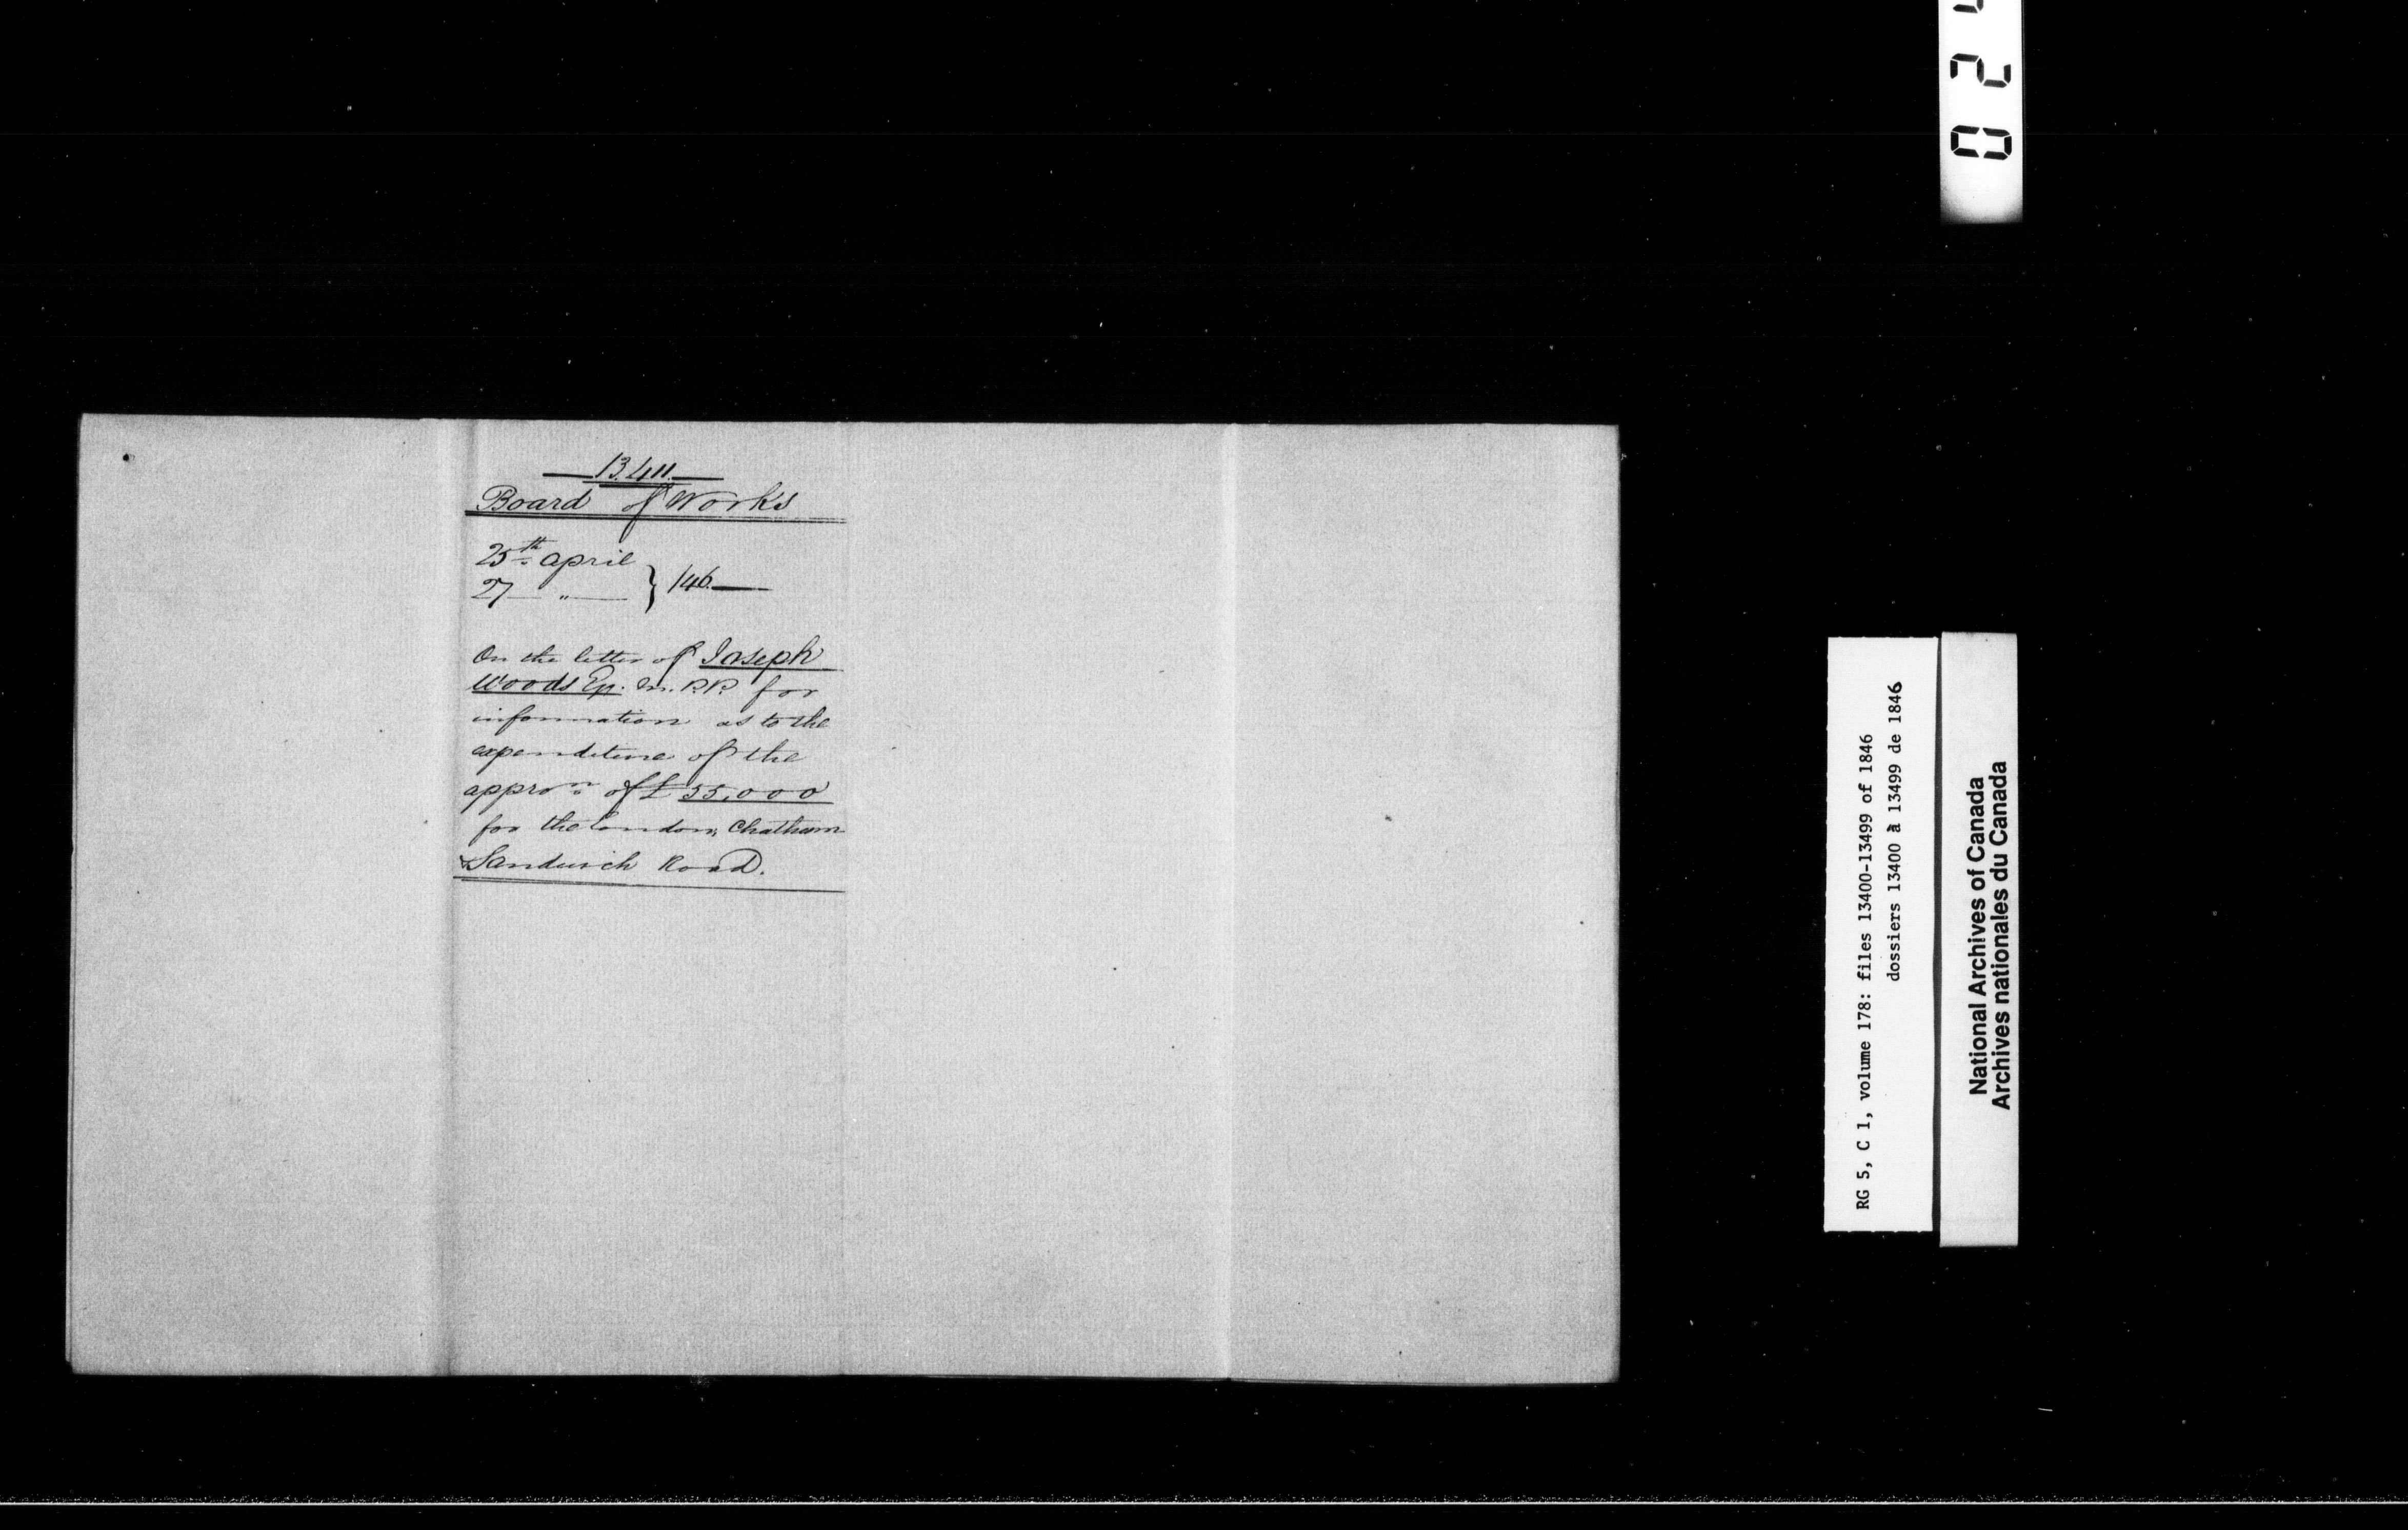 13.411.
Board of Works
25th April
27 — " — } /46.
On the letter of Joseph
Woods Esq. M.P.P. for
information as to the
expenditure of the
appron. of £ 55,000
for the London, Chatham
& Sandwich Road.
RG 5, C 1, volume 178: files 13400-13499 of 1846
dossiers 13400 à 13499 de 1846
National Archives of Canada
Archives nationales du Canada
0 2